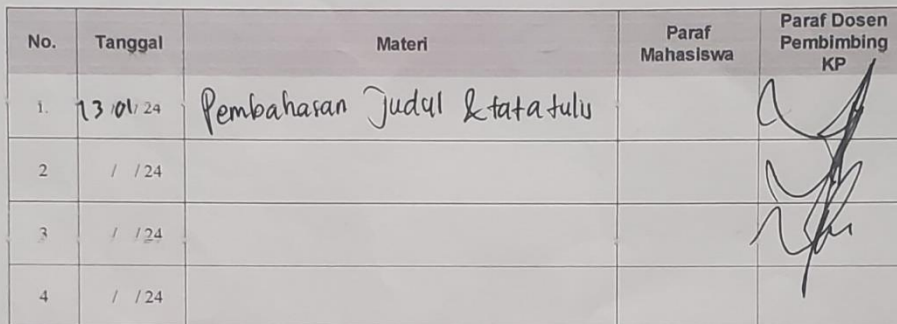 No. Tanggal Materi Paraf Mahasiswa Paraf Dosen Pembimbing KP
1. 13/01/24 Pembahasan Judul & tata tulis
2 / /24
3 / /24
4 / /24